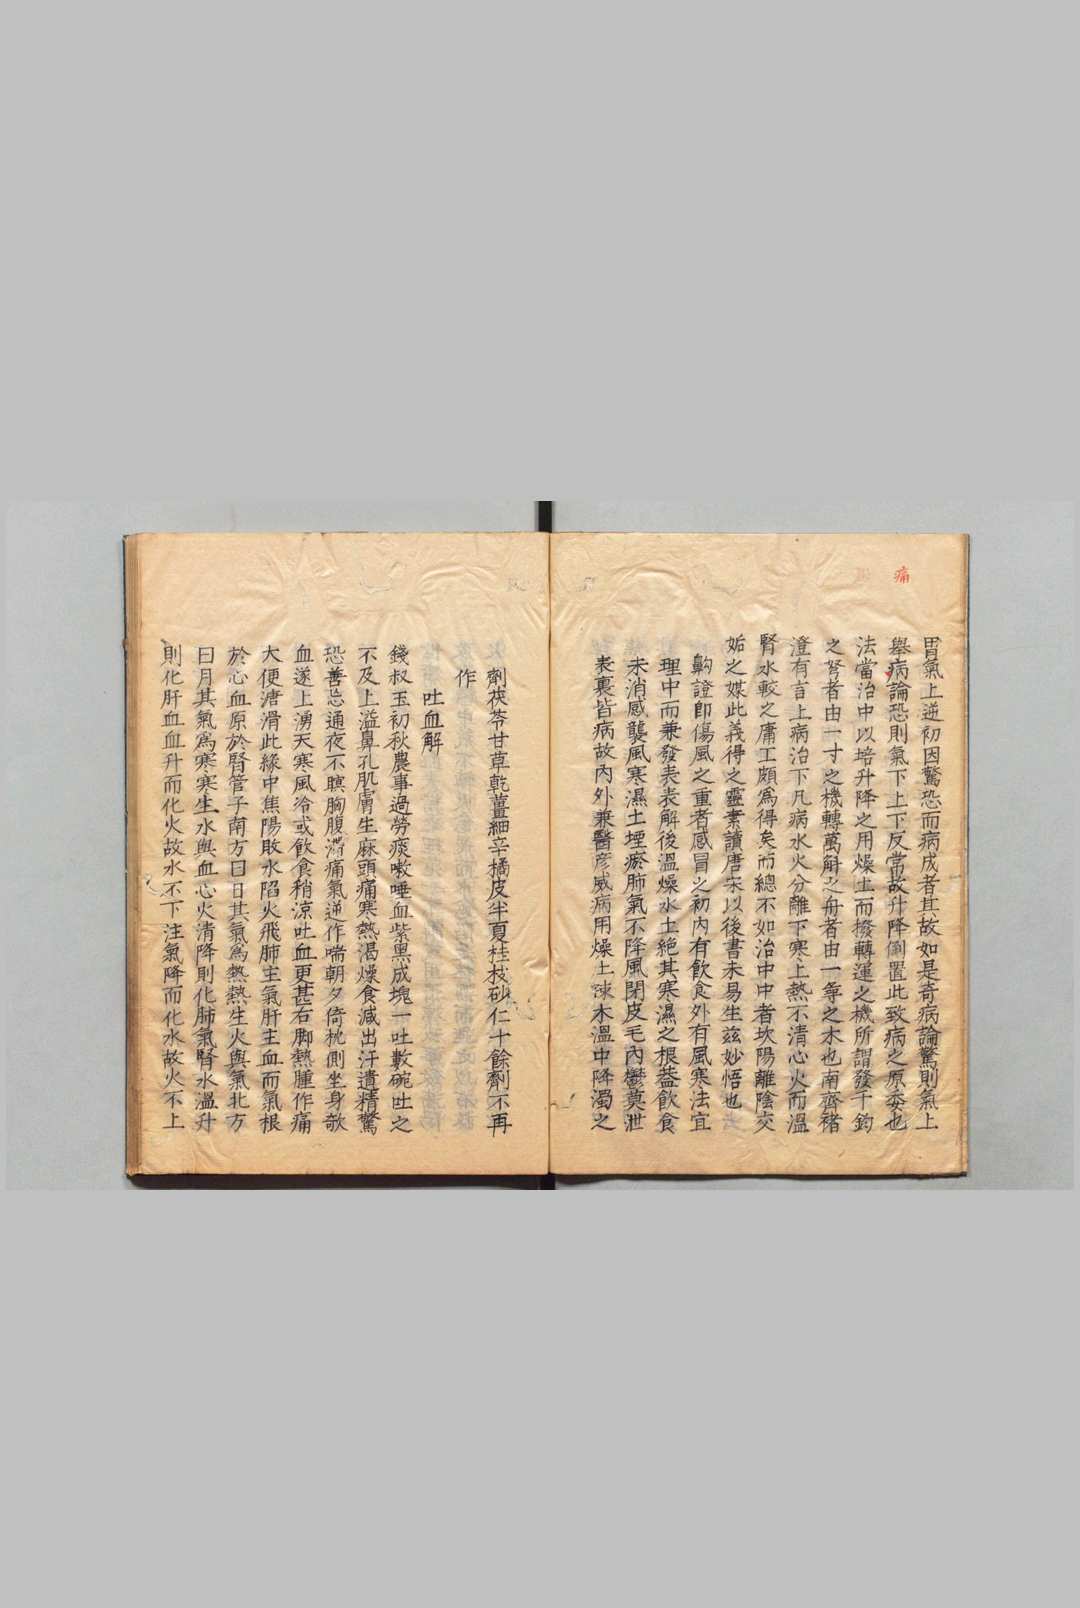 痛
胃氣上逆初因驚恐而病成者其故如是奇病論驚則氣上
舉病論恐則氣下上下反常故升降倒置此致病之原委也
法當治中以培升降之用燥土而撥轉運之機所謂發千鈞
之弩者由一寸之機轉萬斛之舟者由一尋之木也南齊褚
澄有言上病治下凡病水火分離下寒上熱不清心火而溫
腎水較之庸工頗為得矣而總不如治中中者坎陽離陰交
姤之媒此義得之靈素讀唐宋以後書未易生茲妙悟也
鼽證即傷風之重者感冒之初內有飲食外有風寒法宜
理中而兼發表表解後溫燥水土絕其寒濕之根蓋飲食
未消感襲風寒濕土堙瘀肺氣不降風閉皮毛內鬱莫泄
表裏皆病故內外兼醫彥威病用燥土疎木溫中降濁之
劑茯苓甘草乾薑細辛橘皮半夏桂枝砂仁十餘劑不再
作
吐血解
錢叔玉初秋農事過勞痰嗽唾血紫黑成塊一吐數碗吐之
不及上溢鼻孔肌膚生麻頭痛寒熱渴燥食減出汗遺精驚
恐善忘通夜不瞑胸腹滯痛氣逆作喘朝夕倚枕側坐身欹
血遂上湧天寒風冷或飲食稍涼吐血更甚右脚熱腫作痛
大便溏滑此緣中焦陽敗水陷火飛肺主氣肝主血而氣根
於心血原於腎管子南方曰日其氣為熱熱生火與氣北方
曰月其氣為寒寒生水與血心火清降則化肺氣腎水溫升
則化肝血血升而化火故水不下注氣降而化水故火不上